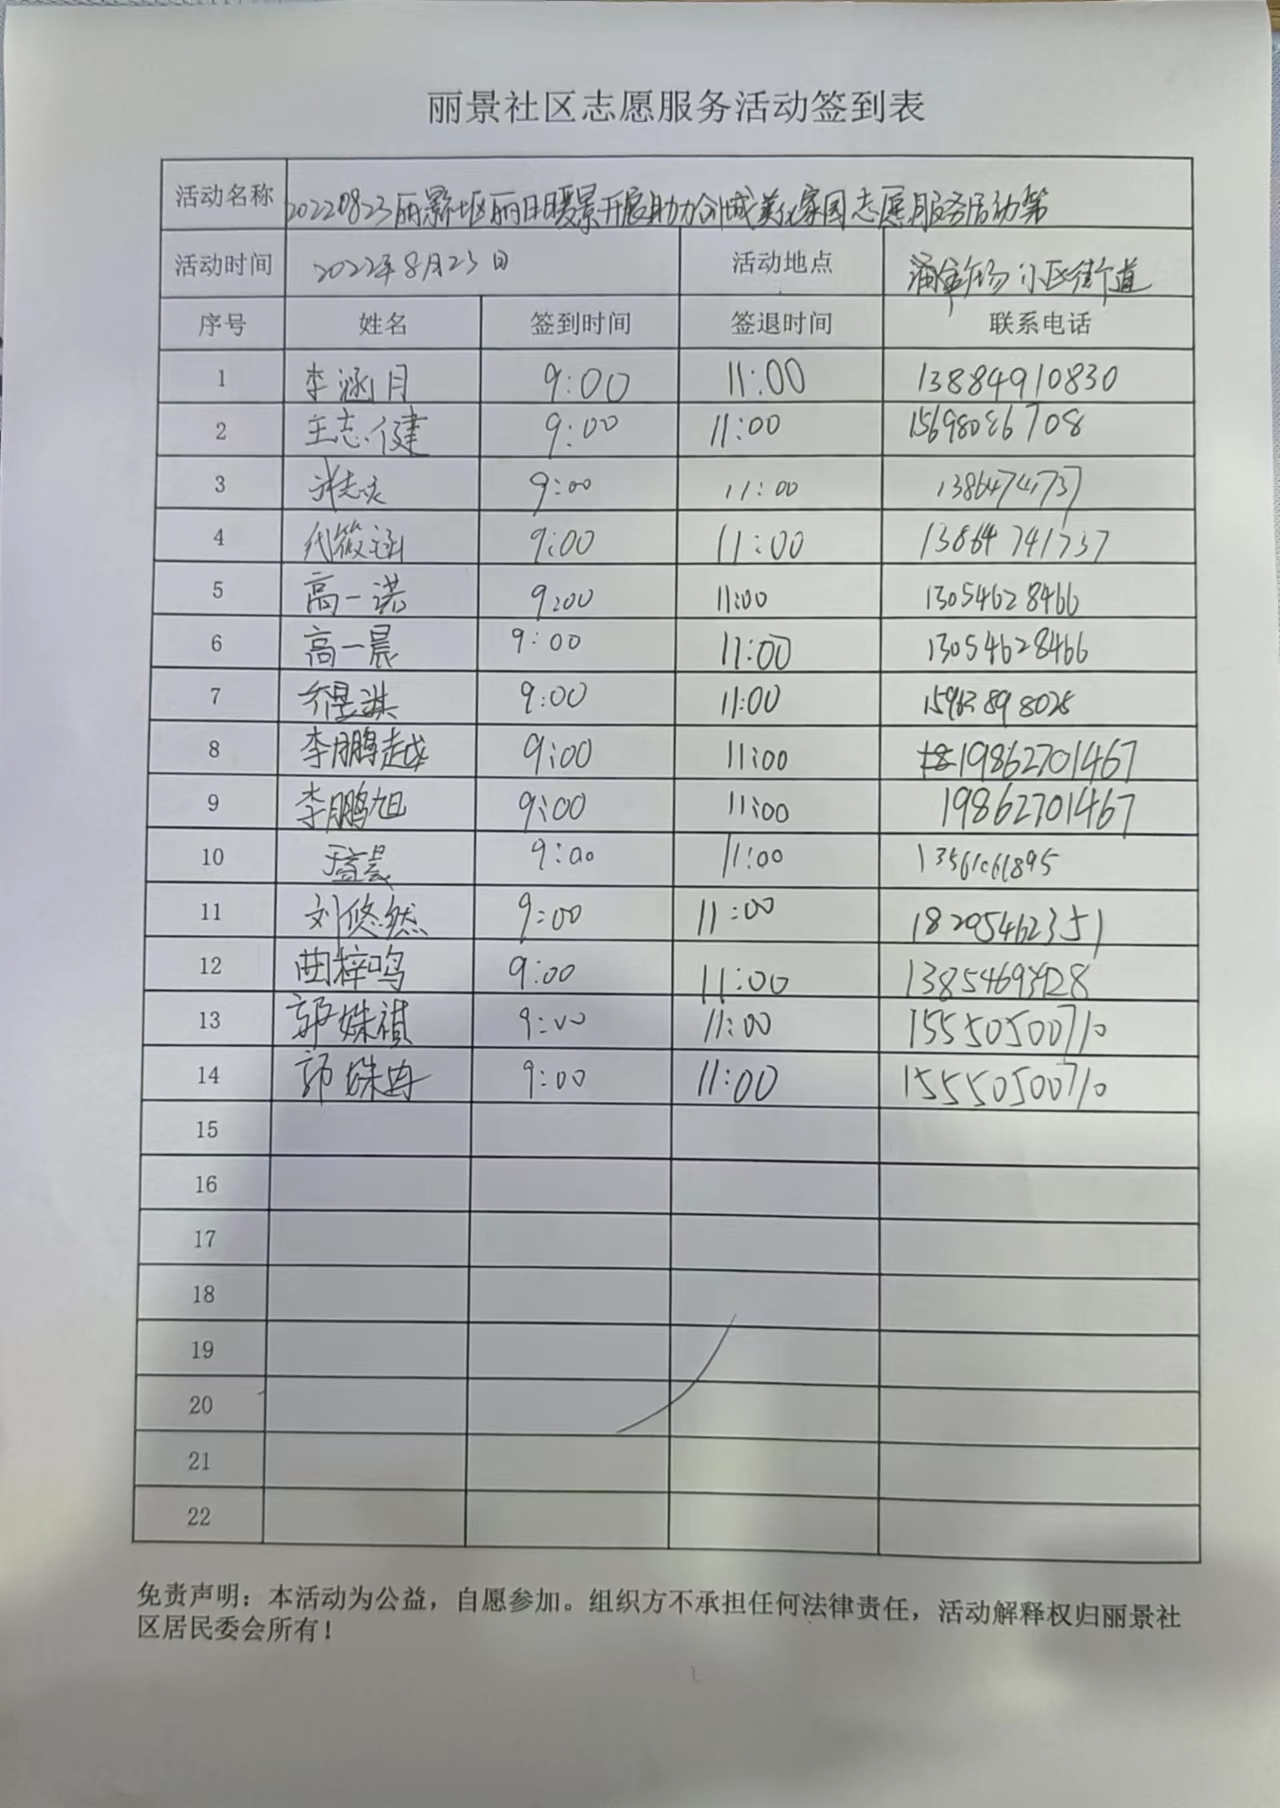 丽景社区志愿服务活动签到表
活动名称 20220823丽景社区丽日暖景开展助力创城美化家园志愿服务活动第
活动时间 2022年8月23日 活动地点 广场 小区街道
序号 姓名 签到时间 签退时间 联系电话
1 李涵月 9:00 11:00 13884910830
2 王志健 9:00 11:00
3 9:00 11:00 13864741737
4 代筱涵 9:00 11:00 13864741737
5 高一诺 9:00 11:00 13054628466
6 高一晨 9:00 11:00 13054628466
7 9:00 11:00
8 李鹏越 9:00 11:00 19862701467
9 李鹏旭 9:00 11:00 19862701467
10 9:00 11:00
11 刘悠然 9:00 11:00 18205462351
12 曲梓鸣 9:00 11:00
13 郭姝祺 9:00 11:00 15550500710
14 郭姝冉 9:00 11:00 15550500710
15
16
17
18
19
20
21
22
免责声明：本活动为公益，自愿参加。组织方不承担任何法律责任，活动解释权归丽景社
区居民委会所有！